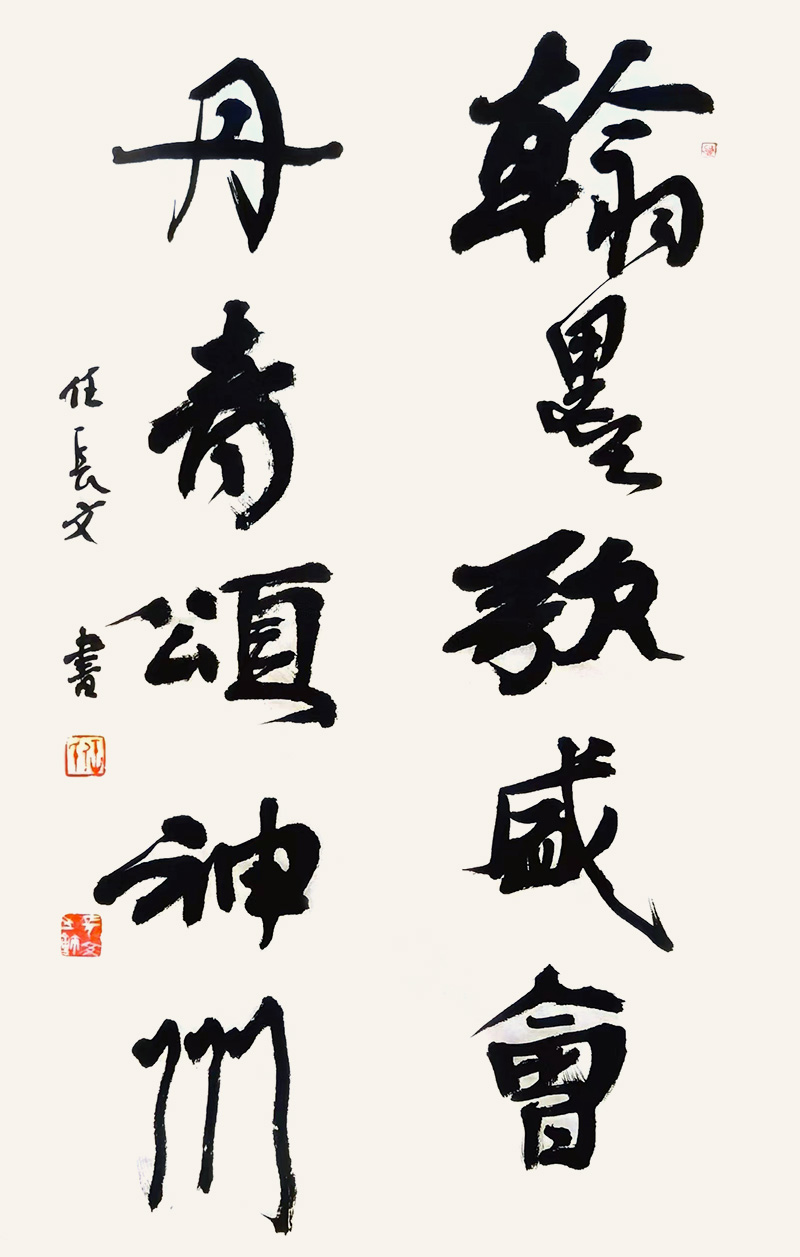 翰墨歌盛會
丹青頌神州
任長文 書